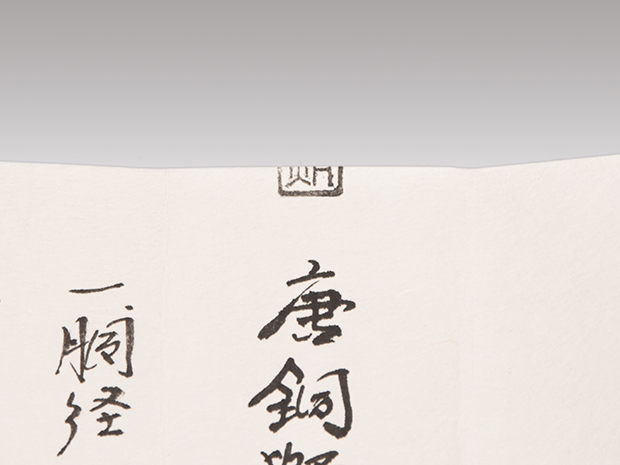 唐銅
一胴径